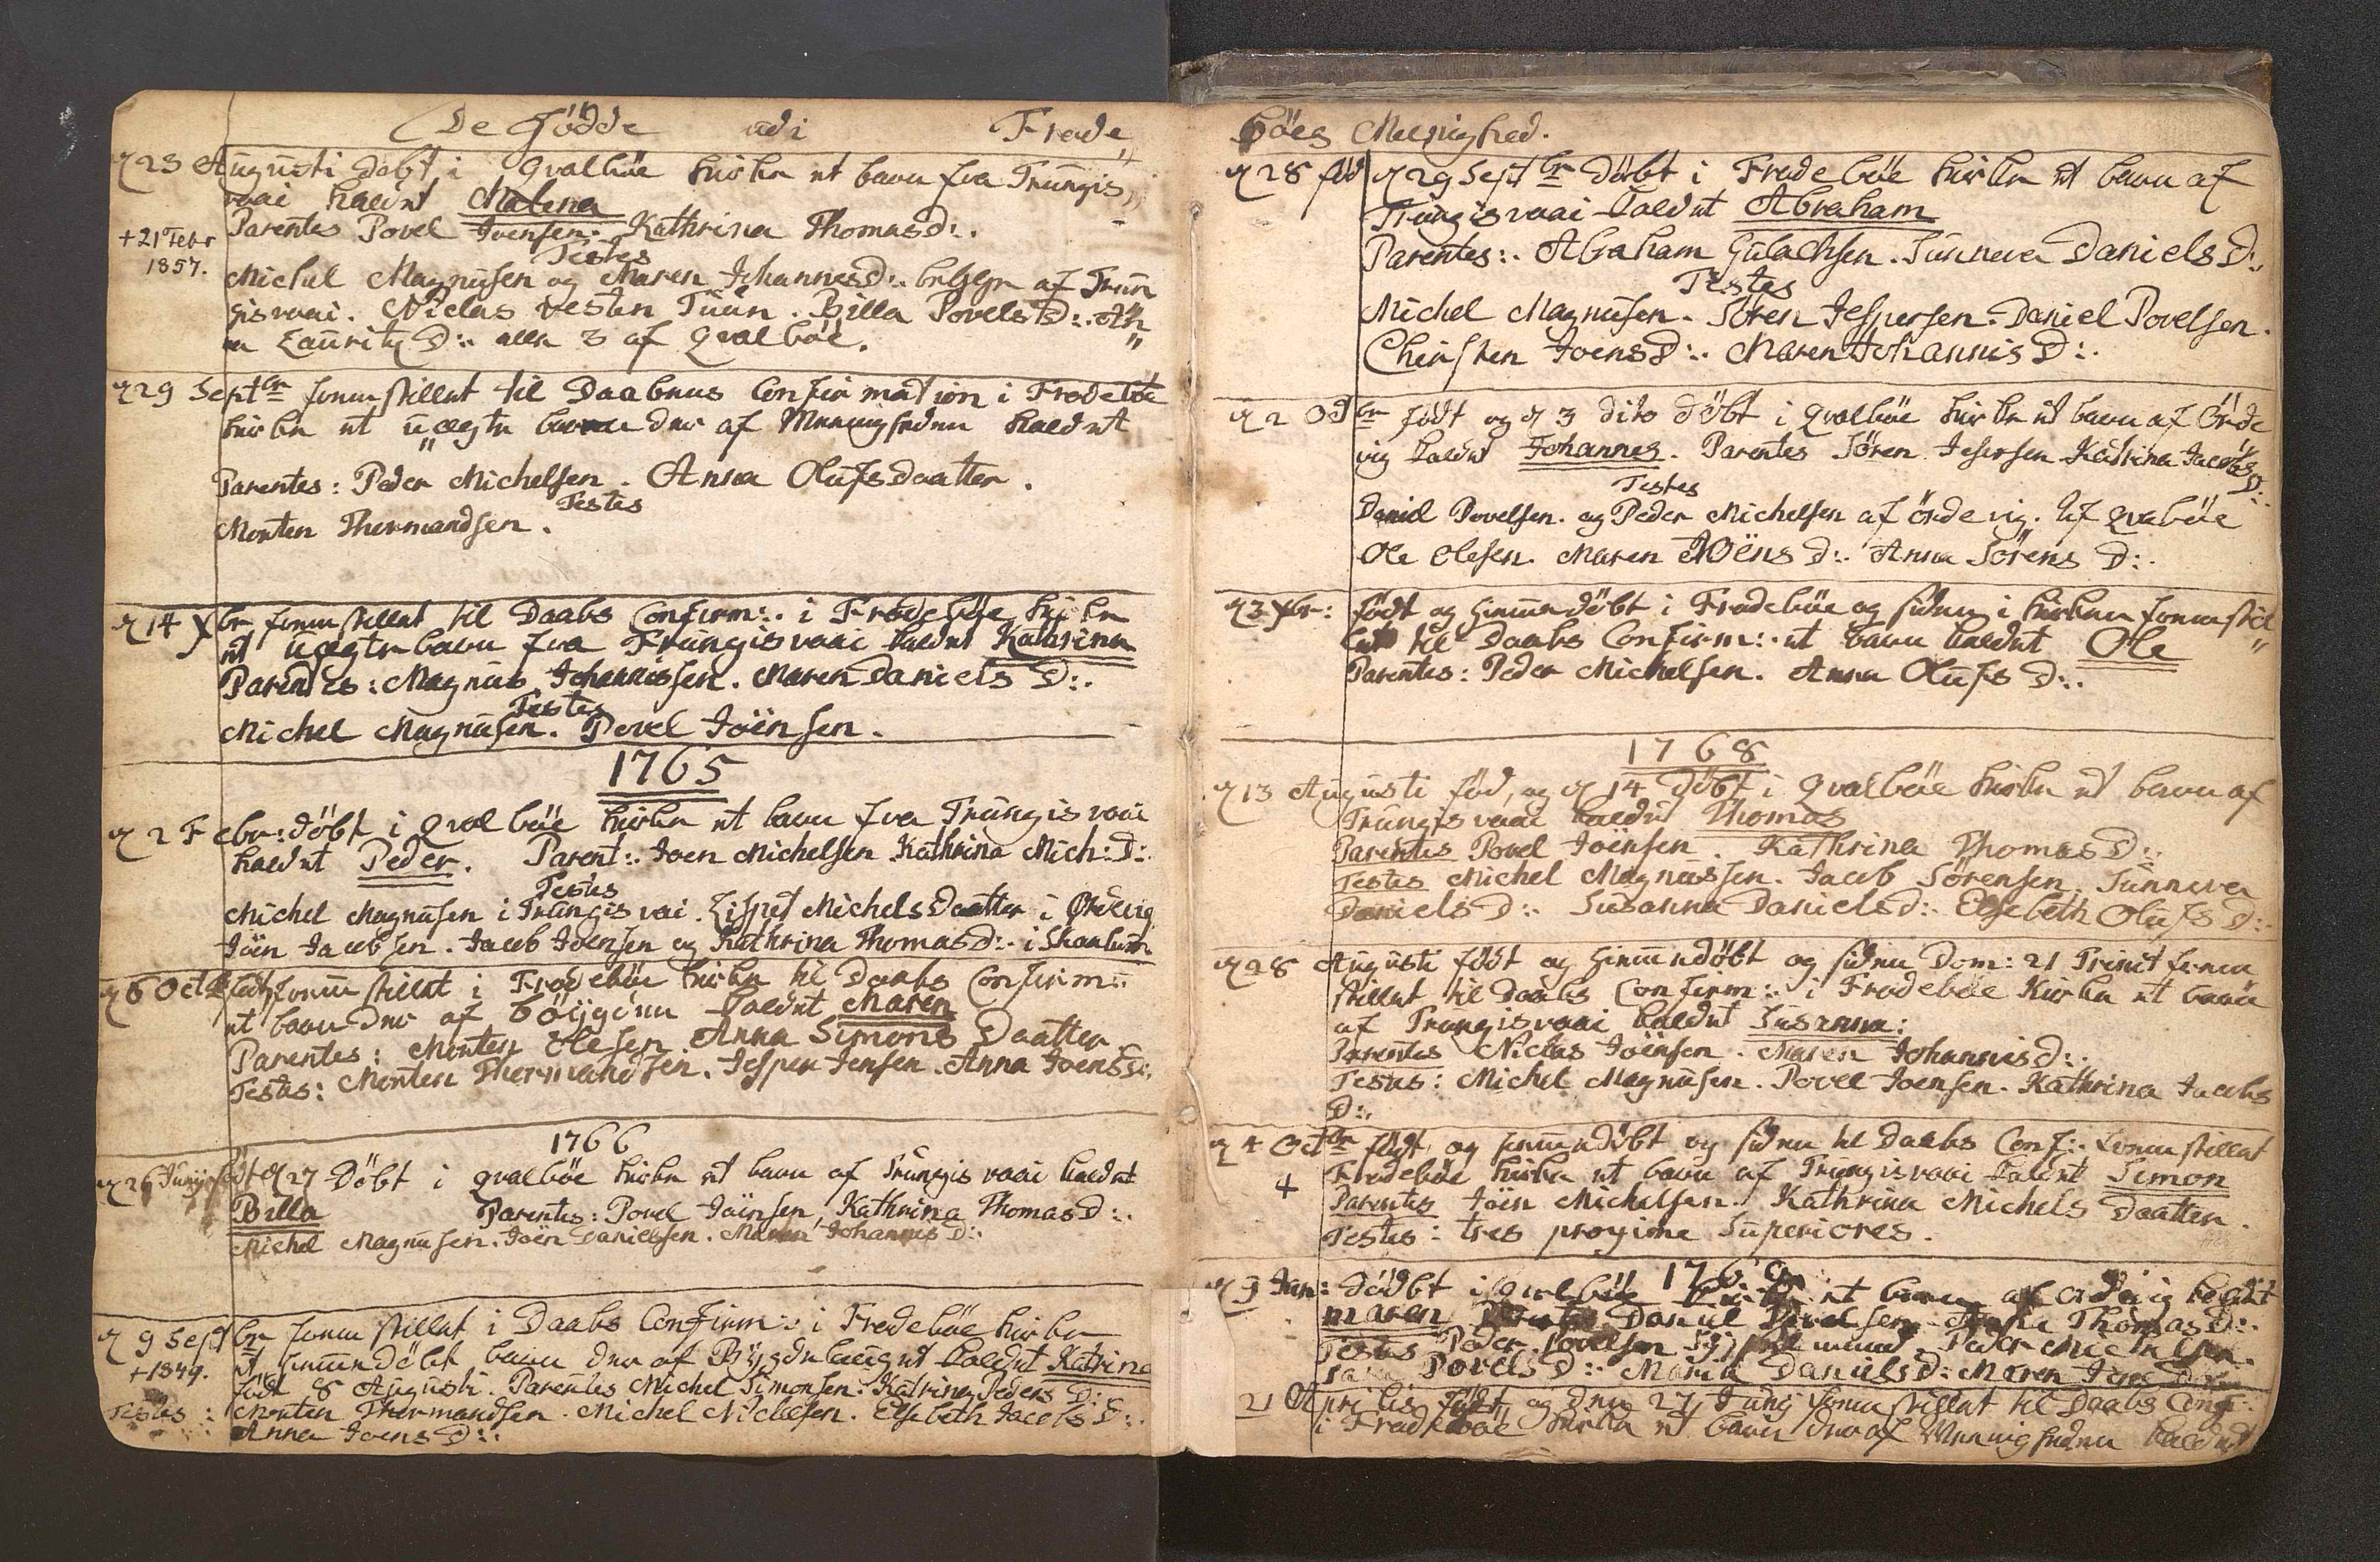 De Födde udi Frode„
d 23 Augusti døbt i Qvalbøe kirke et barn fra Trungis„
vaai kaldet Malena
+21 Febr
1857.
Parentes Povel Joensen: Kathrina Thomasd:.
Testes
Michel Magnusen og Maren Johannesd:. begge af Trun„
gisvaai. Niclas vesten Tuun. Billa Povelsd:. An„
na Lauritz D:. alle 3 af Qvalböe.
d 29 Septbr fremstillet til Daabens Confirmation i Frodeböe
kirke et uægte barn der af Menigheden kaldet
Parentes: Peder Michelsen. Anna Olufsdaatter.
Testes
Morten Thermandsen.
d 14 Xbr fremstillet til Daabs Confirm:. i Frodeböe kirke
et uægte barn fra Trungisvaai kaldet Katarina
Parentes: Magnus Johannissen. Maren Daniels D:.
Testes
Michel Magnusen. Povel Joënsen.
1765
d 2 Febr: döbt i Qvalböe kirke et barn fra Trungisvaai
kaldet Peder. Parent:. Joen Michelsen Kathrina Mich:D:.
Testes
Michel Magnusen i Trungisvai. Lispet Michels Daatter i Ördevig
Joën Jacobsen. Jacob Joensen og Kathrina Thomasd:. i
d 6 Octbr fremstillet i Frodeböe kirke til Daabs Confirm:.
et barn der af böygden kaldet Maren
Parentes: Morten Olesen Anna Simons Daatter
Testes: Morten Thermandsen. Jesper Jensen. Anna Joensd:.
1766
d 26 Junij födt d 27 Döbt i Qvalböe kirke et barn af Trungisvaai kaldet
Billa Parentes: Povel Joënsen, Kathrina Thomasd:.
Michel Magnusen. Joen Danielsen. Maren Johannes D:.
d 9 Septbr fremstillet i Daabs Confirm:. i Frodeböe kirke
+1849. et hiemmedöbt barn der af Bygdelauget kaldet Katrina
födt 8 Augusti. Parentes Michel Simonsen: Katrina Peders D:.
Testes: Morten Thermandsen. Michel Niclesen. Elsebeth Jacobs D:.
Anna Joens D:.
böes Meenighed.
d 28 föd d 29 Septbr Döbt i Frodeböe kirke et barn af
Trungisvaai kaldet Abraham
Parentes:. Abraham Gulachsen. Sunneva Daniels D:.
Testes
Michel Magnusen. Sören Jespersen. Daniel Povelsen.
Chirsten Joensd:. Maren Johannis D:.
d 2 Octbr födt og d 3 dito döbt i Qvalböe kirke et barn af Örde
vig kaldet Johannes. Parentes Sören Jespersen Katrina Jacobs
D:.
Testes
Daniel Povelsen. og Peder Michelsen af Ördevig. Af Qvalböe
Ole Olesen. Maren Joëns D:. Anna Sörens D:.
d 3 Xbr: födt og hiemmedöbt i Frodeböe og siden i kirken fremstil„
let til Daabs Confirm:. et barn kaldet Ole
Parentes: Peder Michelsen. Anna Olufs D:.
1768
d 13 Augusti föd, og d 14 Döbt i Qvalböe kirke et barn af
Trungisvaai kaldet Thomas
Parentes Povel Joënsen. Kathrina Thomas D:.
Testes Michel Magnussen. Jacob Sörensen. Sunneva
Daniels D:. Susanna Daniels d:. Elsebeth Olufs D:.
d 28 Augusti födt og hiemmedöbt og siden Dom: 21 Trinit frem
stillet til Daabs Confirm:. i Frodeböe Kirke et barn
af Trungisvaai kaldet Susanna:
Parentes Niclas Joënsen. Maren Johannisd:.
Testes: Michel Magnusen. Povel Joensen. Kathrina Jacobs
D:.
d 4 Octbr födt og hiemmedöbt og siden til Daabs Conf:. fremstillet
+ Frodeböe kirke et barn af Trungisvaai kaldet Simon
Parentes Joën Michelsen. Kathrina Michels Daatter.
Testes: tres proxime Superiores.
1769
d 9 Jan: Dödbt i Qvalböe kirke et barn af Ordevig kaldet
maren Daniel Povelsen Thomas D:.
Testes Peder Povelsen Peder Michelsen.
Povels D:. Maria Daniels d: Maren Jens D:.
21 Aprilis födt, og den 27 Junij fremstillet til Daabs Conf:.
i Frodeböe kirke et barn der af Menigheden kaldet